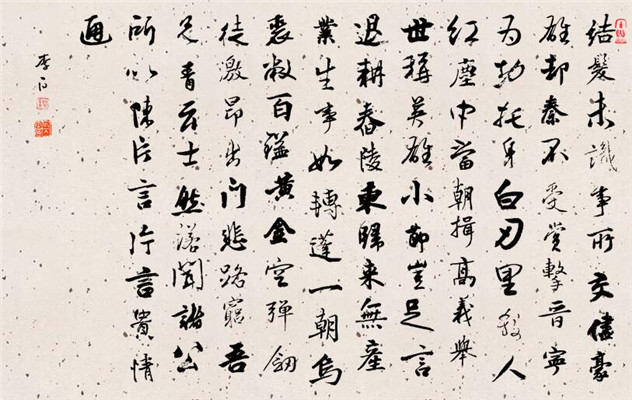 結髮未識事所交儘豪
雄却秦不受賞擊晉寧
为功托身白刃里殺人
紅塵中當朝揖高義舉
世稱英雄小節豈足言
退耕舂陵東歸来無產
業生事如轉蓬一朝烏
裘敝百鎰黄金空弹劍
徒激昂出门悲路窮吾
兄青云士然諾聞諸公
所以陳片言片言貴情
通
李